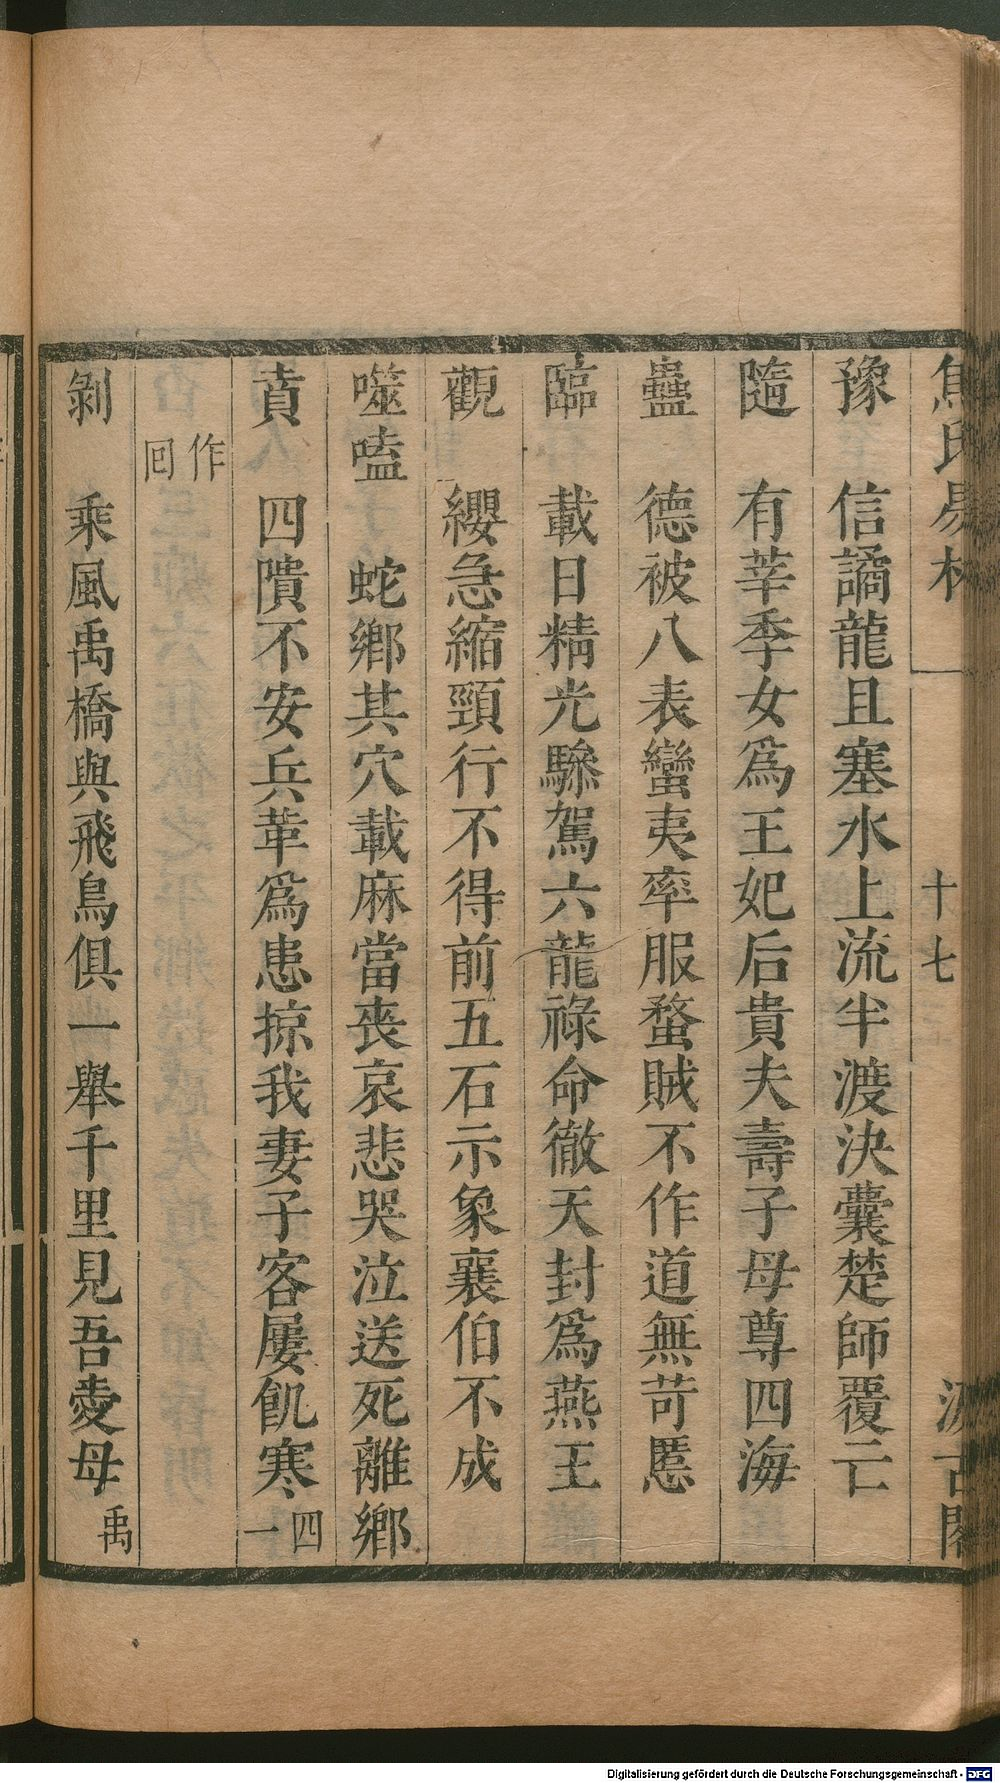 焦氏易林 一 十七 汲古閣
豫 信譎龍且塞水上流半渡決囊楚師覆亡
隨 有莘季女爲王妃后貴夫壽子母尊四海
蠱 德被八表蠻夷率服蝥賊不作道無苛慝
臨 載日精光驂駕六龍祿命徹天封爲燕王
觀 纓急縮頸行不得前五石示象襄伯不成
噬嗑 蛇鄉其穴載麻當喪哀悲哭泣送死離鄉
賁 四隤不安兵革爲患掠我妻子客屢飢寒 四一
作回
剝 乘風禹橋與飛鳥俱一舉千里見吾愛母 禹
Digitalisierung gefördert durch die Deutsche Forschungsgemeinschaft - DFG